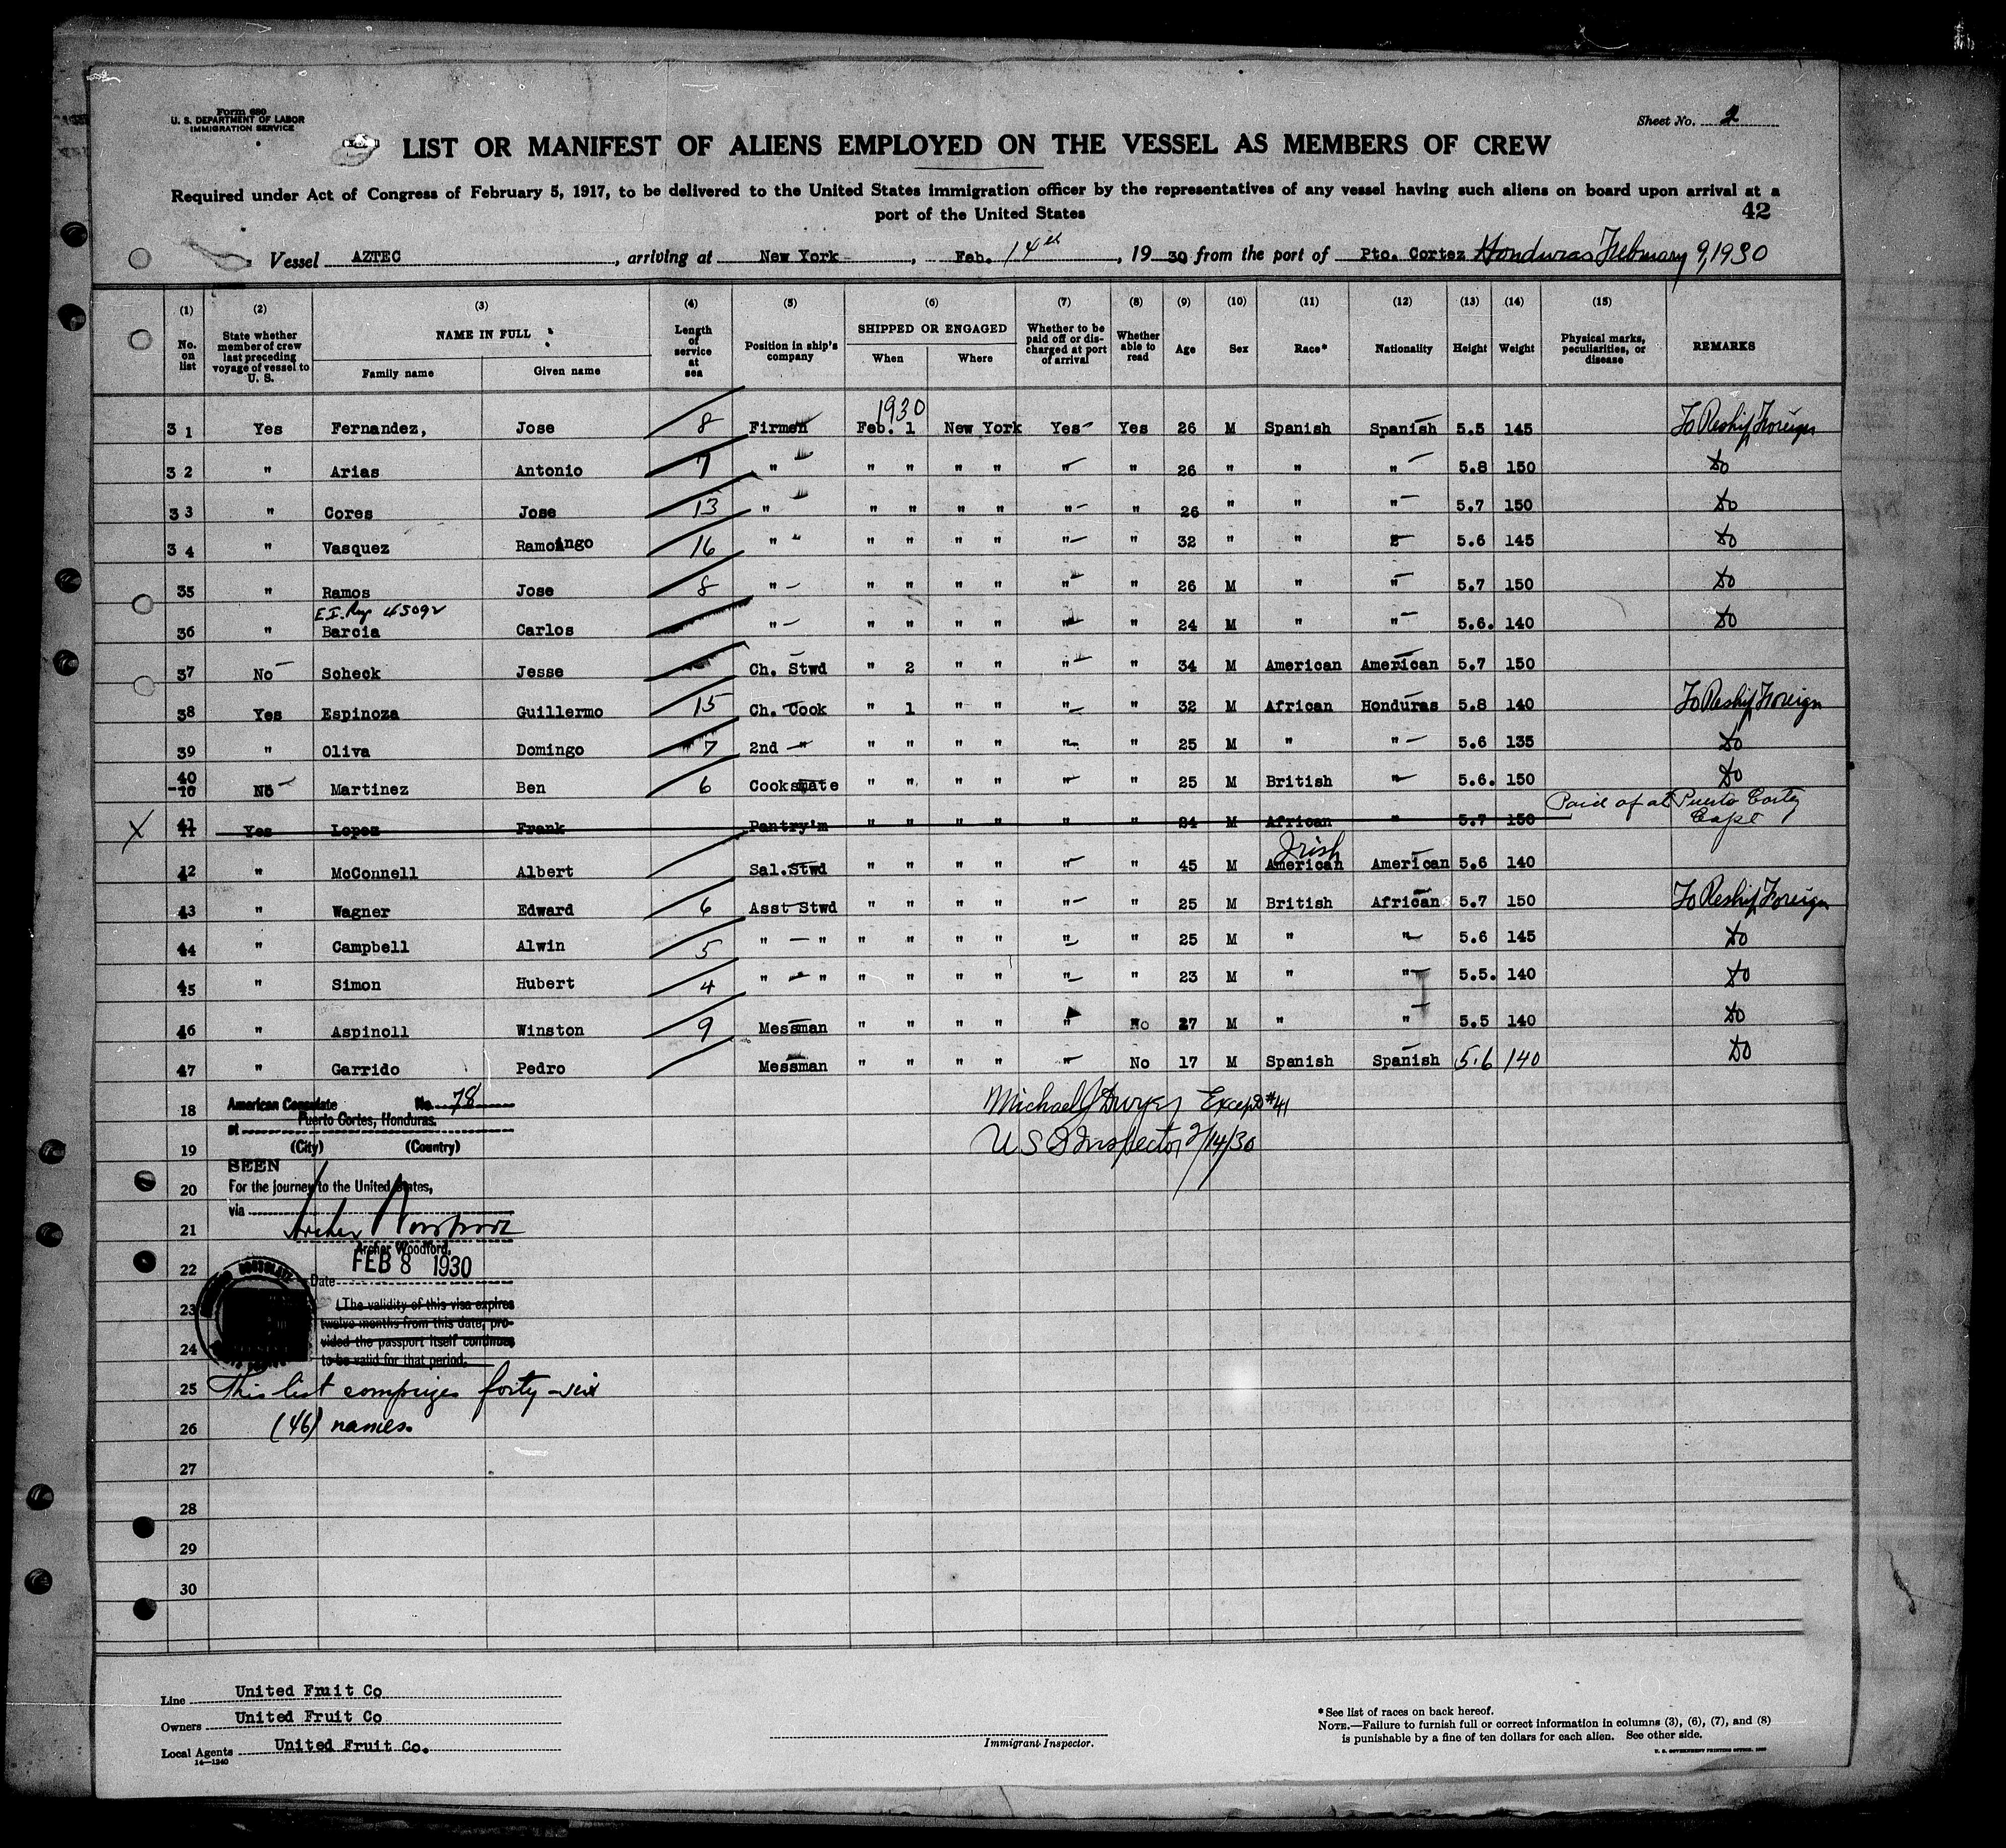 Form 680
U. S. DEPARTMENT OF LABOR
IMMIGRATION SERVICE
Sheet No. 2
LIST OR MANIFEST OF ALIENS EMPLOYED ON THE VESSEL AS MEMBERS OF CREW
Required under Act of Congress of February 5, 1917, to be delivered to the United States immigration officer by the representatives of any vessel having such aliens on board upon arrival at a
port of the United States
42
Vessel AZTEC, arriving at New York, Feb. 14th, 1930 from the port of Pto. Cortez Honduras February 9, 1930
(1) (2) (3) (4) (5) (6) (7) (8) (9) (10) (11) (12) (13) (14) (15)
No. on list State whether member of crew last preceding voyage of vessel to U. S. NAME IN FULL Family name Given name Length of service at sea Position in ship's company SHIPPED OR ENGAGED When Where Whether to be paid off or discharged at port of arrival Whether able to read Age Sex Race* Nationality Height Weight Physical marks, peculiarities, or disease REMARKS
1930
31 Yes Fernandez, Jose 8 Firmen Feb. 1 New York Yes Yes 26 M Spanish Spanish 5.5 145 To Reship Foreign
32 " Arias Antonio 7 " " " " " " " 26 " " " 5.8 150 Do
33 " Cores Jose 13 " " " " " " " 26 " " " 5.7 150 Do
34 " Vasquez Ramoingo 16 " " " " " " " 32 " " " 5.6 145 Do
35 " Ramos Jose 8 " " " " " " " 26 M " " 5.7 150 Do
E.I. Reg 45092
36 " Barcia Carlos " " " " " " " 24 M " " 5.6. 140 Do
37 No Scheck Jesse Ch. Stwd " 2 " " " " 34 M American American 5.7 150
38 Yes Espinoza Guillermo 15 Ch. Cook " 1 " " " " 32 M African Honduras 5.8 140 To Reship Foreign
39 " Oliva Domingo 7 2nd " " " " " " " 25 M " " 5.6 135 Do
40 No Martinez Ben 6 Cooksmate " " " " " " 25 M British " 5.6. 150 Do
X 41 Yes Lopez Frank Pantry'm " " " " " " 24 M African " 5.7 150 Paid of at Puerto Cortez Capt
42 " McConnell Albert Sal.Stwd " " " " " " 45 M American Irish American 5.6 140
43 " Wagner Edward 6 Asst Stwd " " " " " " 25 M British African 5.7 150 To Reship Foreign
44 " Campbell Alwin 5 " " " " " " " " 25 M " " 5.6 145 Do
45 " Simon Hubert 4 " " " " " " " " 23 M " " 5.5. 140 Do
46 " Aspinoll Winston 9 Messman " " " " " No 27 M " " 5.5 140 Do
47 " Garrido Pedro Messman " " " " " No 17 M Spanish Spanish 5.6 140 Do
American Consulate No. 78
18
at Puerto Cortes, Honduras.
(City) (Country)
19
Michael J Dwyer Except #41
U S I Inspector 2/14/30
SEEN
For the journey to the United States,
20
via
21
Archer Woodford
Archer Woodford.
22
Date FEB 8 1930
23
(The validity of this visa expires
twelve months from this date, pro-
vided the passport itself continues
24
to be valid for that period.
25 This list comprizes forty-six
26 (46) names.
27
28
29
30
Line United Fruit Co
Owners United Fruit Co
Local Agents United Fruit Co.
14—1240
Immigrant Inspector.
*See list of races on back hereof.
NOTE.—Failure to furnish full or correct information in columns (3), (6), (7), and (8)
is punishable by a fine of ten dollars for each alien. See other side.